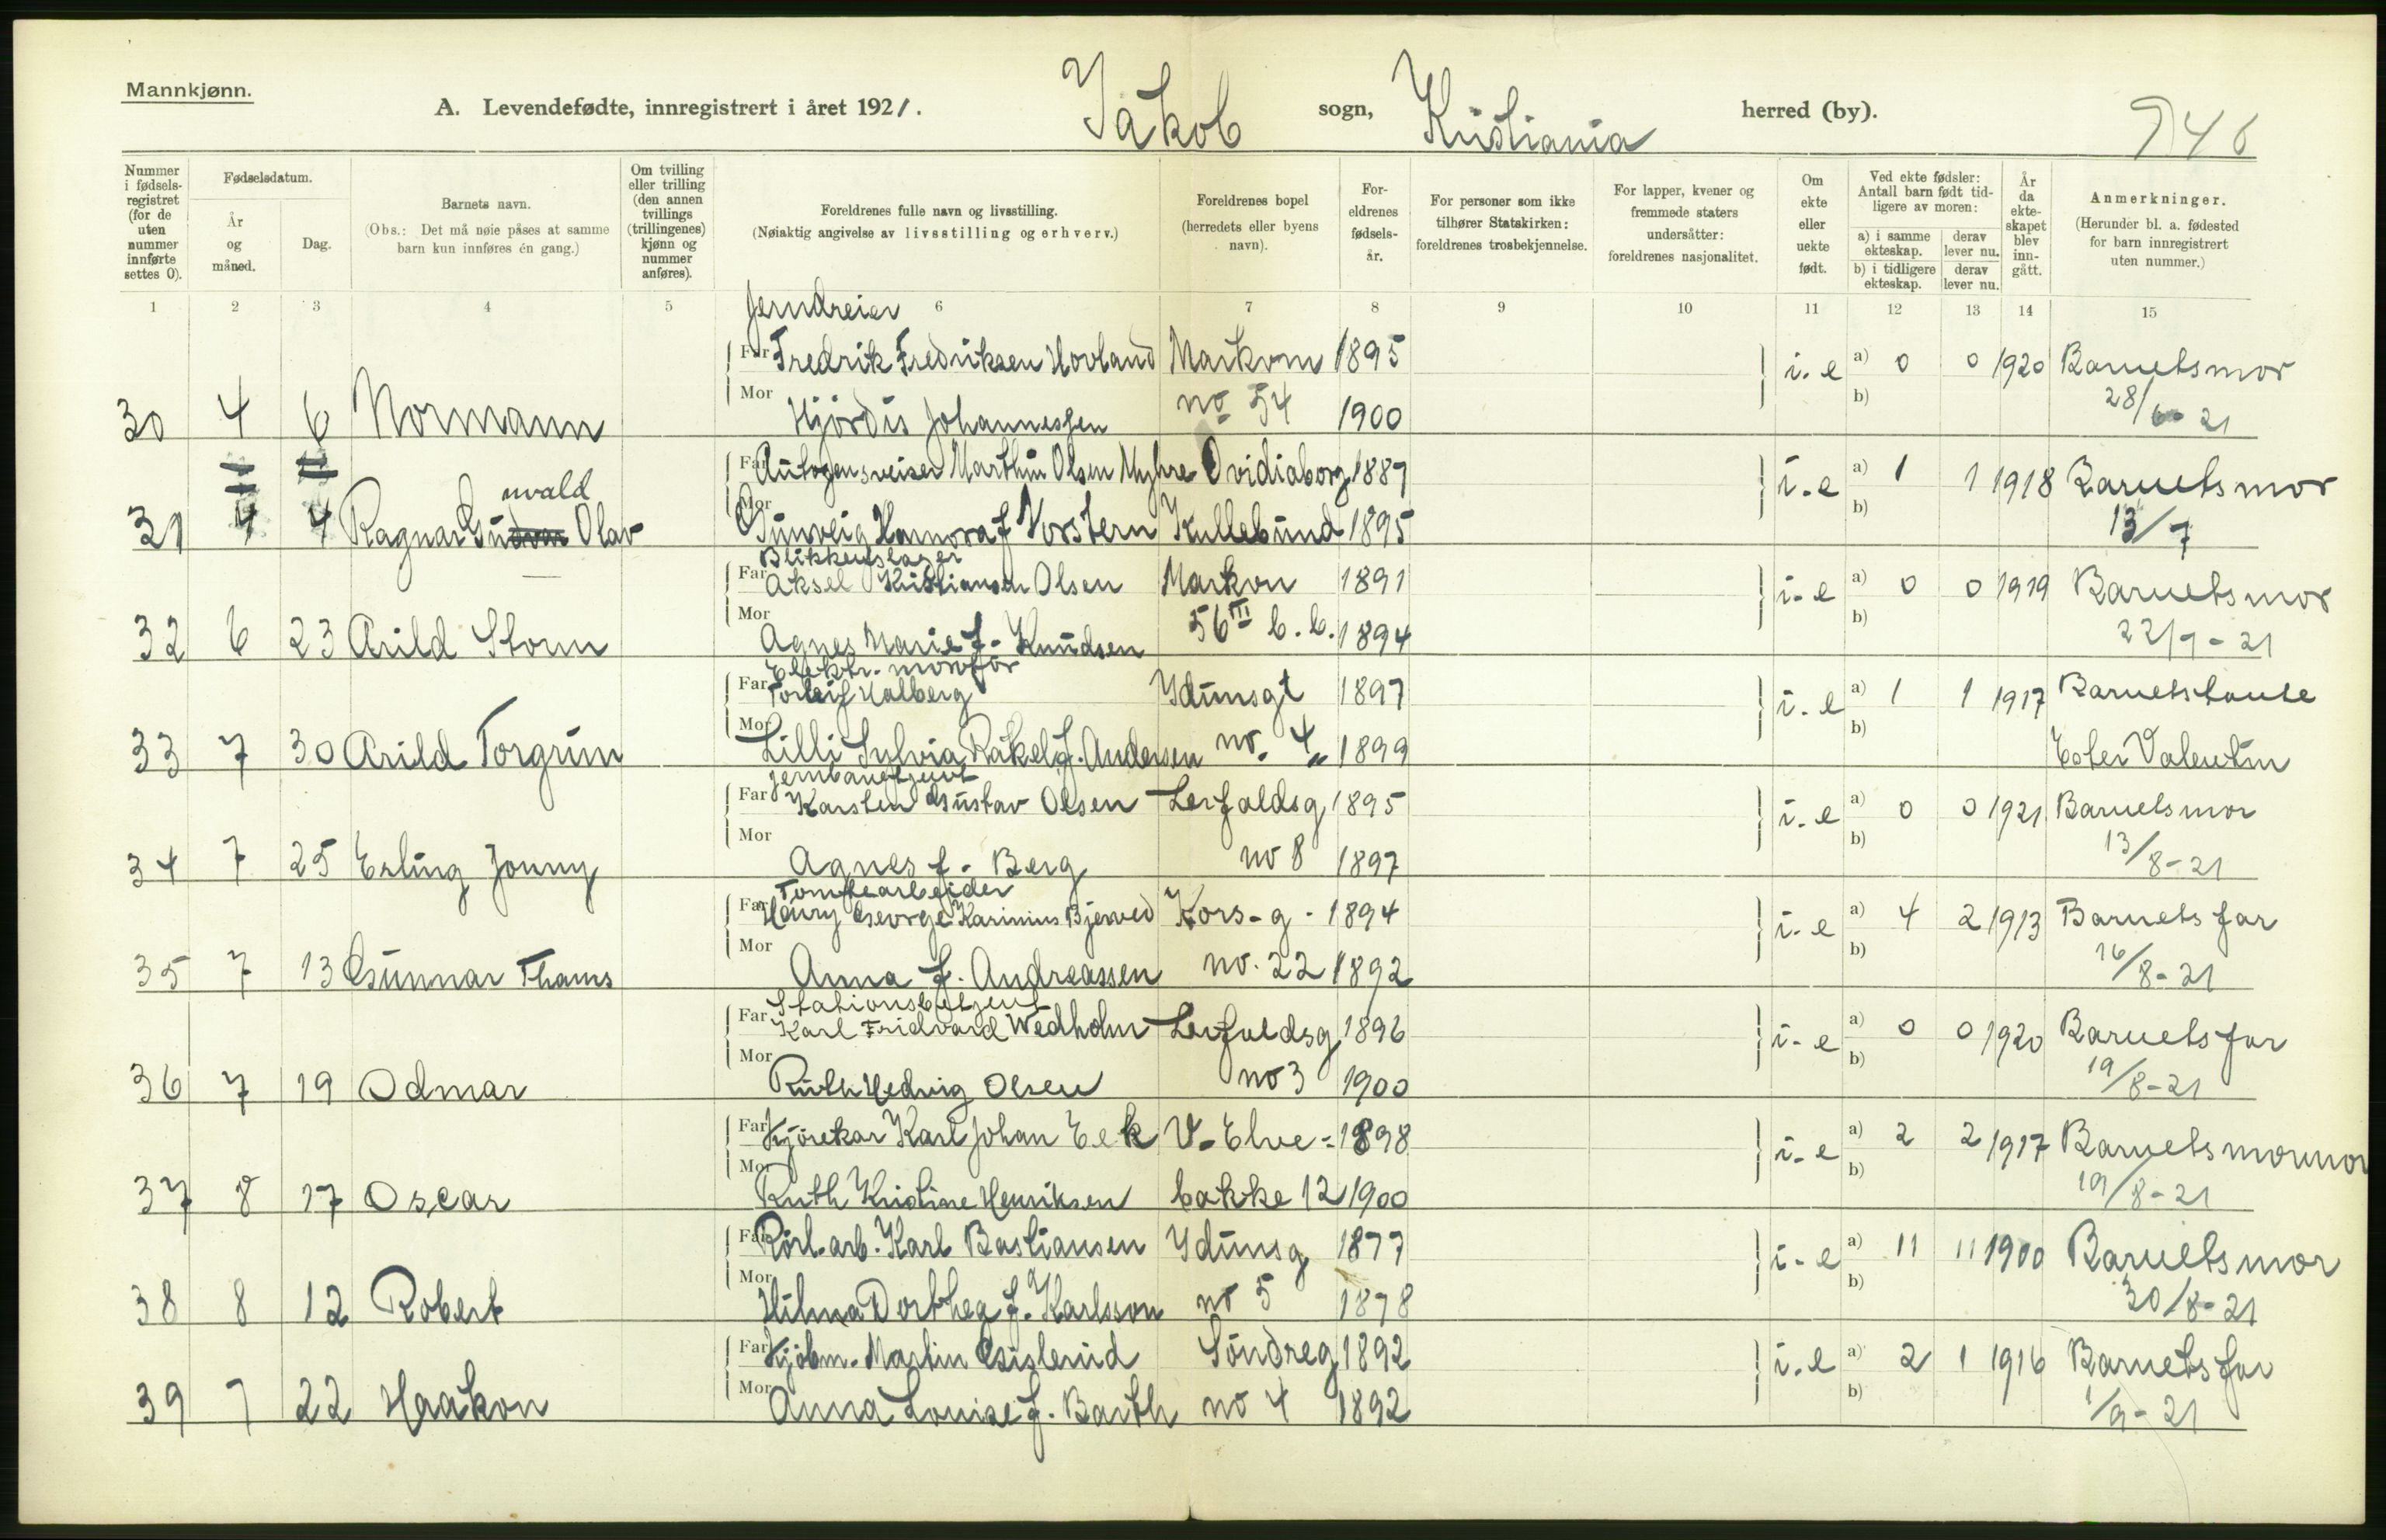 Mannkjønn.
A. Levendefødte, innregistrert i året 1921. Jakob sogn, Kristiania herred (by).
Nummer i fødsels-registret (for de uten nummer innførte settes 0).
Fødselsdatum.
År og måned.
Dag.
Barnets navn.
(Obs.: Det må nøie påses at samme barn kun innføres én gang.)
Om tvilling eller trilling (den annen tvillings (trillingenes) kjønn og nummer anføres).
Foreldrenes fulle navn og livsstilling.
(Nøiaktig angivelse av livsstilling og erhverv.)
Foreldrenes bopel (herredets eller byens navn).
For-eldrenes fødsels-år.
For personer som ikke tilhører Statskirken: foreldrenes trosbekjennelse.
For lapper, kvener og fremmede staters undersåtter: foreldrenes nasjonalitet.
Om ekte eller uekte født.
Ved ekte fødsler: Antall barn født tid-ligere av moren:
a) i samme ekteskap. derav lever nu.
b) i tidligere ekteskap. derav lever nu.
År da ekte-skapet blev inn-gått.
Anmerkninger.
(Herunder bl. a. fødested for barn innregistrert uten nummer.)
1 2 3 4 5 6 7 8 9 10 11 12 13 14 15
Jerndreier
Far Fredrik Fredriksen Hovland Markvn 1895 i. e a) 0 0 1920 Barnets mor
30 4 6 Normann Mor Hjördis Johannessen no 54 1900 b) 28/6-21
Far Autogensveiser Marthin Olsen Myhre Ovidiaborg 1887 i. e a) 1 1 1918 Barnets mor
nvald
31 4 4 Ragnar Olav Mor f Vorstern Kullebund 1895 b) 13/7
Blikkenslager
Far Aksel Kristiansen Olsen Markvn 1891 i. e a) 0 0 1919 Barnets mor
32 6 23 Arild Storm Mor Agnes Marie f. Knudsen 56 III b. b. 1894 b) 22/7-21
Elektr. montør
Far Torleif Halberg Ydunsgt 1897 i. e a) 1 1 1917 Barnets tante
33 7 30 Arild Torgrim Mor Lilli Sylvia Rakel f. Andersen no. 4 1899 b) Ester Valentin
Jernbanebetjent
Far Karsten Gustav Olsen Leirfaldsg 1895 i. e a) 0 0 1921 Barnets mor
34 7 25 Erling Jonny Mor Agnes f. Berg no 8 1897 b) 13/8-21
Tomtearbeider
Far Henry George Karinius Bjerved Kors-g. 1894 i. e a) 4 2 1913 Barnets far
35 7 13 Gunnar Thams Mor Anna f. Andreassen no. 22 1892 b) 16/8-21
Stationsbetjent
Far Karl Fridvard Wedholm Leirfaldsg 1896 i. e a) 0 0 1920 Barnets far
36 7 19 Odmar Mor Ruth Hedvig Olsen no 3 1900 b) 19/8-21
Far Kjörekar Karl Johan Eek V. Elve= 1898 i. e a) 2 2 1917 Barnets mormor
37 8 17 Oscar Mor Ruth Kristine Henriksen bakke 12 1900 b) 19/8-21
Far Rörl. arb. Karl Bastiansen Ydunsg 1877 i. e a) 11 11 1900 Barnets mor
38 8 12 Robert Mor Hilma Dorthea f. Karlsson no 5 1878 b) 30/8-21
Far Kjöbm. Martin Gislerud Söndreg 1892 i. e a) 2 1 1916 Barnets far
39 7 22 Haakon Mor Anna Louise f. Barth no 4 1892 b) 1/9-21